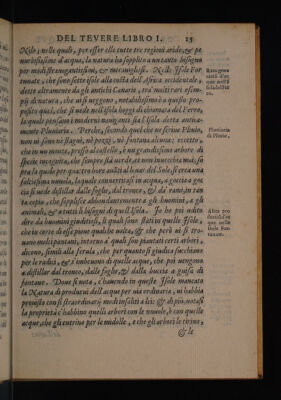 DEL TEVERE LIBRO I. 15
Nilo; nelle quali, per esser elle tutte tre regioni aride, & pe
nuriosissime d'acqua, la natura ha supplito a un tanto bisogno
per modi strauagantissimi, & merauigliosi. Nelle Isole For
tunate, che sono sette isole alla costa dell'Africa occidentale,
dette altramente da gli antichi Canarie, tra'molti rari essem
pij di natura, che vi si veggono, notabilissimo è a questo pro
posito quel, che si vede nell'isola hoggi dì chiamata del Ferro,
la quale pensano i moderni nauiganti sia l'Isola detta antica
mente Pluuiaria. Perche, secondo quel che ne scriue Plinio,
non vi sono ne stagni, nè pozzi, nè fontana alcuna: eccetto,
che in un monte, presso al castello, è un grandissimo arbore di
specie incognita, che sempre stà uerde, et non inuecchia mai, so
pra la quale per quattro hore auāti al leuar del Sole, si cerca una
foltissima nuuola, la quale conuertitasi in acqua, a goccia a goc
cia si uede distillar dalle foglie, dal tronco, & da' rami, in tan
ta copia, che supplisce abbondantemente a gli huomini, a gli
animali, & a tutti li bisogni di quell'Isola. Io ho poi udito
dire da huomini giuditiosi, li quali sono stati in quelle Isole,
che in corte di esse piono qualche volta, & che però ui si tro-
uano molti pantani, intorno a' quali son piantati certi arbori,
dicono, simili alla ferula, che per quanto si giudica succhiano
per le radici, & s'imbeuono di quelle acque, che poi uengono
a distillar dal tronco, dalle foglie, & dalla buccia a guisa di
fontane. Doue si nota, c'hauendo in quelle Isole mancato
la Natura di produrui dell'acque per uia ordinaria, ui habbia
prouisto con sì straordinarij modi insoliti a lei: & di più, notasi
la proprietà c'hobbino quelli arbori con le nuuole, è con quelle
acque, che gli entrino per le midolle, e che gli arbori le tirino,
& le
Pluuiaria
di Plinio.